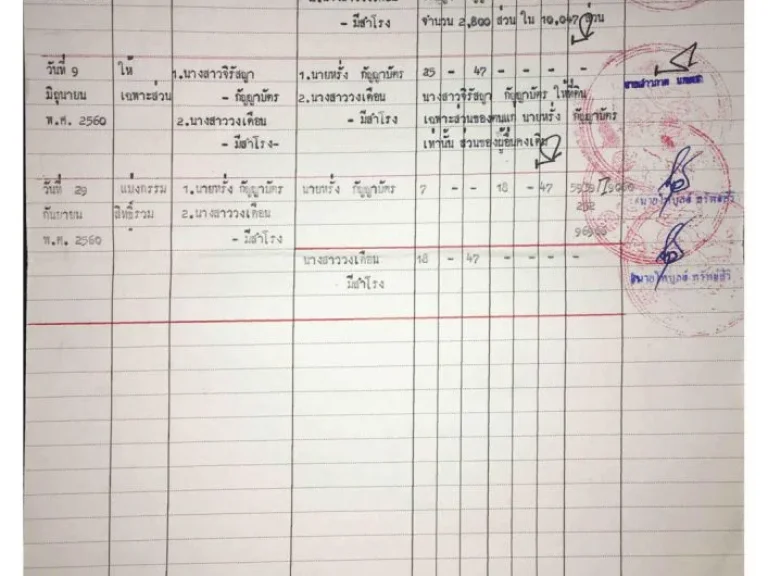 - มีสำโรง จำนวน 2,800 ส่วน ใน 10,047 ส่วน
วันที่ 9 ให้ 1.นางสาวจิรัสญา 1.นายหรั่ง กัญญาบัตร 25 - 47 - - - -
มิถุนายน เฉพาะส่วน - กัญญาบัตร 2.นางสาววงเดือน นางสาวจิรัสญา กัญญาบัตร ให้ที่ดิน
พ.ศ. 2560 2.นางสาววงเดือน - มีสำโรง เฉพาะส่วนของตนแก่ นายหรั่ง กัญญาบัตร
- มีสำโรง- เท่านั้น ส่วนของผู้อื่นคงเดิม
วันที่ 29 แบ่งกรรม 1.นายหรั่ง กัญญาบัตร นายหรั่ง กัญญาบัตร 7 - - 18 - 47
กันยายน สิทธิ์รวม 2.นางสาววงเดือน
พ.ศ. 2560 - มีสำโรง
นางสาววงเดือน 18 - 47 - - - -
มีสำโรง